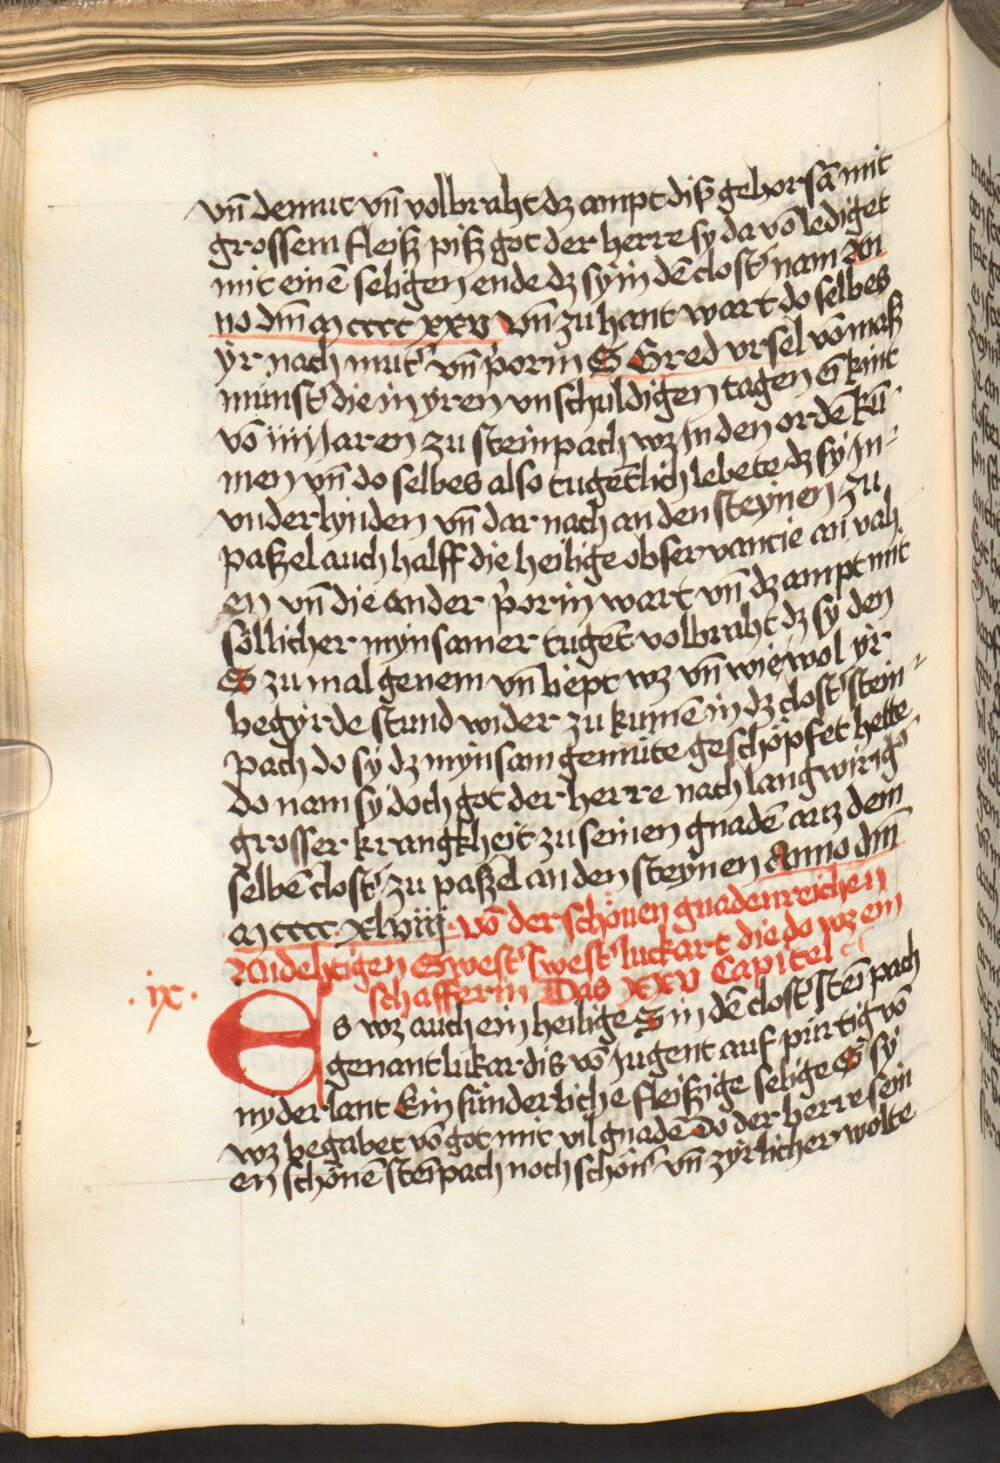 vn̄ demut vn̄ volbraht dz ampt diß gehorsā mit
grossem fleiß piß got der herre sy da vō lediget
mit einē seligen ende dz sy in dē clost' nam An
no dm̄ m cccc xxv vn̄ zu hant wart do selbes
yr nach mut' vn̄ p'orin S Gred vrsel vō maß
münst' die in yren vnschuldigen tagen ē kint
vō iiij Jaren zu steinpach wz in den ordē kū
men vn̄ do selbes also tugētlich lebete dz sy in
vnderlynden vn̄ dar nach an den steynen zu
paßel auch halff die heilige obseruancie an vah
en vn̄ die ander p'orin wart vn̄ dz ampt mit
söllicher mynsamer tugēt volbraht dz sy den
S zu mal genem vn̄ bept wz vn̄ wie wol yr
begyrde stund wider zu kumē in dz clost' stein
pach do sy dz mynsam gemüte geschöpfet hette
do nam sy doch got der herre nach langwirig'
grosser krangkheit zu seinen gnadē auz dem
selbē clost' zu paßel an den steynen Anno dm̄
m cccc xlviij vō der schönen gnadenreichen
Andehtigen Swest' swest' luckart die do wz ein
schafferin Das XXV Capitel
· ix ·
Es wz auch ein heilige S in dē clost' stēpach
genant lukardis vō Jugent auf pürtig vō
nyderlant Ein sünderliche fleißige selige S sy
wz begabet vō got mit vil gnadē Do der herre sein
en schönē stēpach noch schön' vn̄ zyrlicher wolte